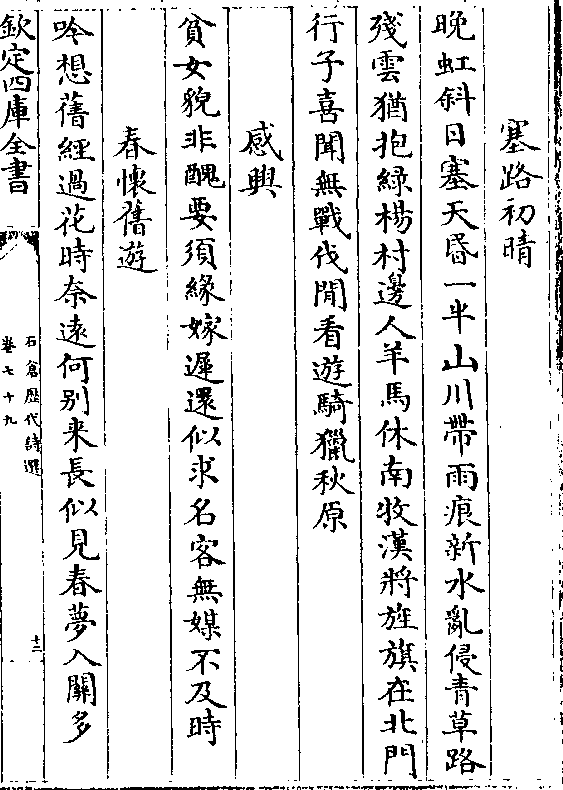 塞路初晴
晚虹斜日塞天昏一半山川帶雨痕新水亂侵青草路
殘雲猶抱綠楊村邊人羊馬休南牧漢將旌旗在北門
行子喜聞無戰伐閒看遊騎獵秋原
感興
貧女貌非醜要須緣嫁遲還似求名客無媒不及時
春懷舊遊
吟想舊經過花時奈逺何别来長似見春夢入關多
欽定四庫全書
石倉歷代詩選
卷七十九
十三